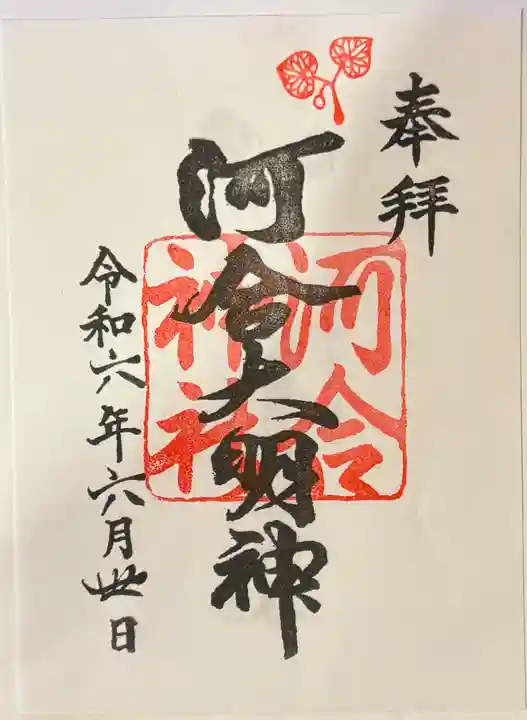 奉拝
河合大明神
河合神社
令和六年六月丗日